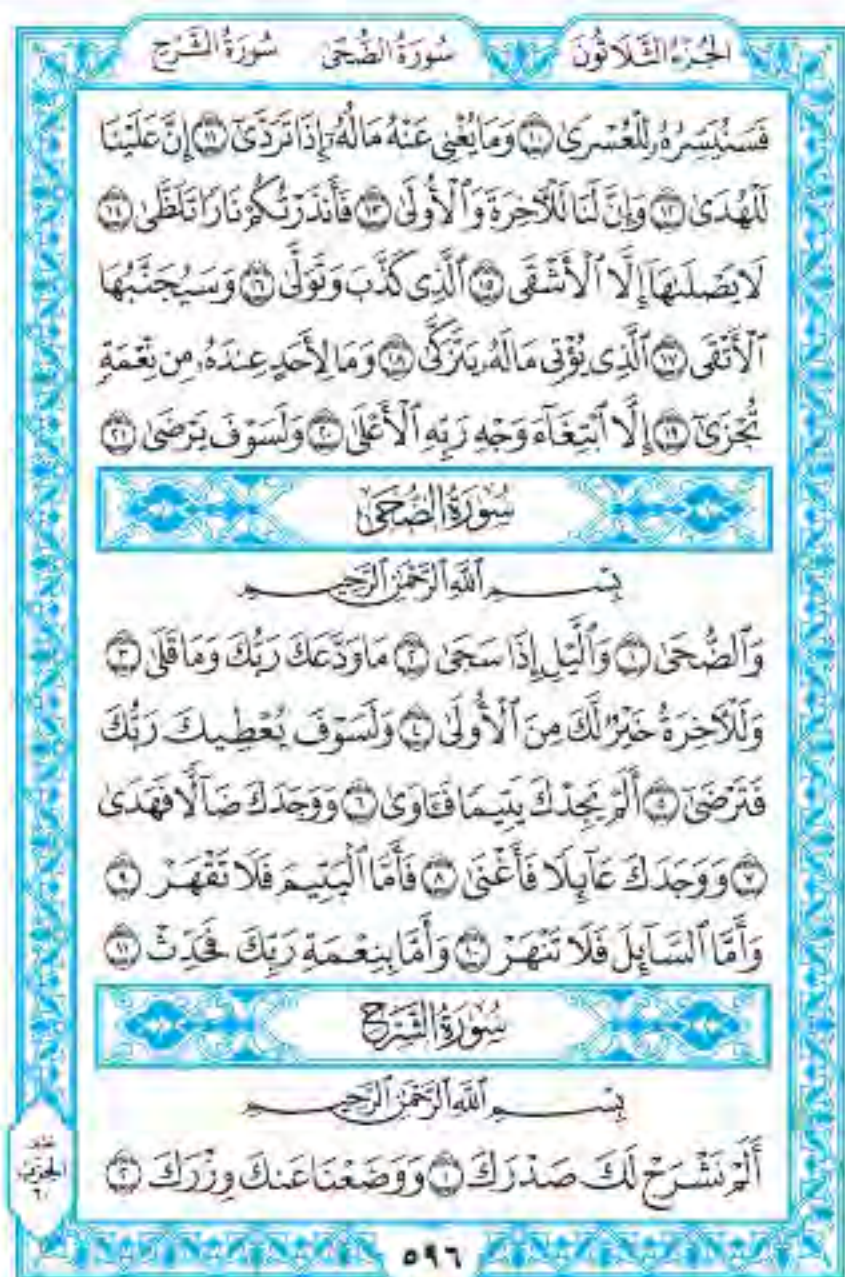 الجُزْءُ الثَّلَاثُونَ سُورَةُ الضُّحَىٰ سُورَةُ الشَّرْحِ
فَسَنُيَسِّرُهُۥ لِلْعُسْرَىٰ ١٠ وَمَا يُغْنِى عَنْهُ مَالُهُۥٓ إِذَا تَرَدَّىٰٓ ١١ إِنَّ عَلَيْنَا
لَلْهُدَىٰ ١٢ وَإِنَّ لَنَا لَلْءَاخِرَةَ وَٱلْأُولَىٰ ١٣ فَأَنذَرْتُكُمْ نَارًا تَلَظَّىٰ ١٤
لَا يَصْلَىٰهَآ إِلَّا ٱلْأَشْقَى ١٥ ٱلَّذِى كَذَّبَ وَتَوَلَّىٰ ١٦ وَسَيُجَنَّبُهَا
ٱلْأَتْقَى ١٧ ٱلَّذِى يُؤْتِى مَالَهُۥ يَتَزَكَّىٰ ١٨ وَمَا لِأَحَدٍ عِندَهُۥ مِن نِّعْمَةٍ
تُجْزَىٰٓ ١٩ إِلَّا ٱبْتِغَآءَ وَجْهِ رَبِّهِ ٱلْأَعْلَىٰ ٢٠ وَلَسَوْفَ يَرْضَىٰ ٢١
سُورَةُ الضُّحَىٰ
بِسْمِ ٱللَّهِ ٱلرَّحْمَٰنِ ٱلرَّحِيمِ
وَٱلضُّحَىٰ ١ وَٱلَّيْلِ إِذَا سَجَىٰ ٢ مَا وَدَّعَكَ رَبُّكَ وَمَا قَلَىٰ ٣
وَلَلْءَاخِرَةُ خَيْرٌ لَّكَ مِنَ ٱلْأُولَىٰ ٤ وَلَسَوْفَ يُعْطِيكَ رَبُّكَ
فَتَرْضَىٰٓ ٥ أَلَمْ يَجِدْكَ يَتِيمًا فَـَٔاوَىٰ ٦ وَوَجَدَكَ ضَآلًّا فَهَدَىٰ
٧ وَوَجَدَكَ عَآئِلًا فَأَغْنَىٰ ٨ فَأَمَّا ٱلْيَتِيمَ فَلَا تَقْهَرْ ٩
وَأَمَّا ٱلسَّآئِلَ فَلَا تَنْهَرْ ١٠ وَأَمَّا بِنِعْمَةِ رَبِّكَ فَحَدِّثْ ١١
سُورَةُ الشَّرْحِ
بِسْمِ ٱللَّهِ ٱلرَّحْمَٰنِ ٱلرَّحِيمِ
أَلَمْ نَشْرَحْ لَكَ صَدْرَكَ ١ وَوَضَعْنَا عَنكَ وِزْرَكَ ٢
الحزب
٦٠
٥٩٦